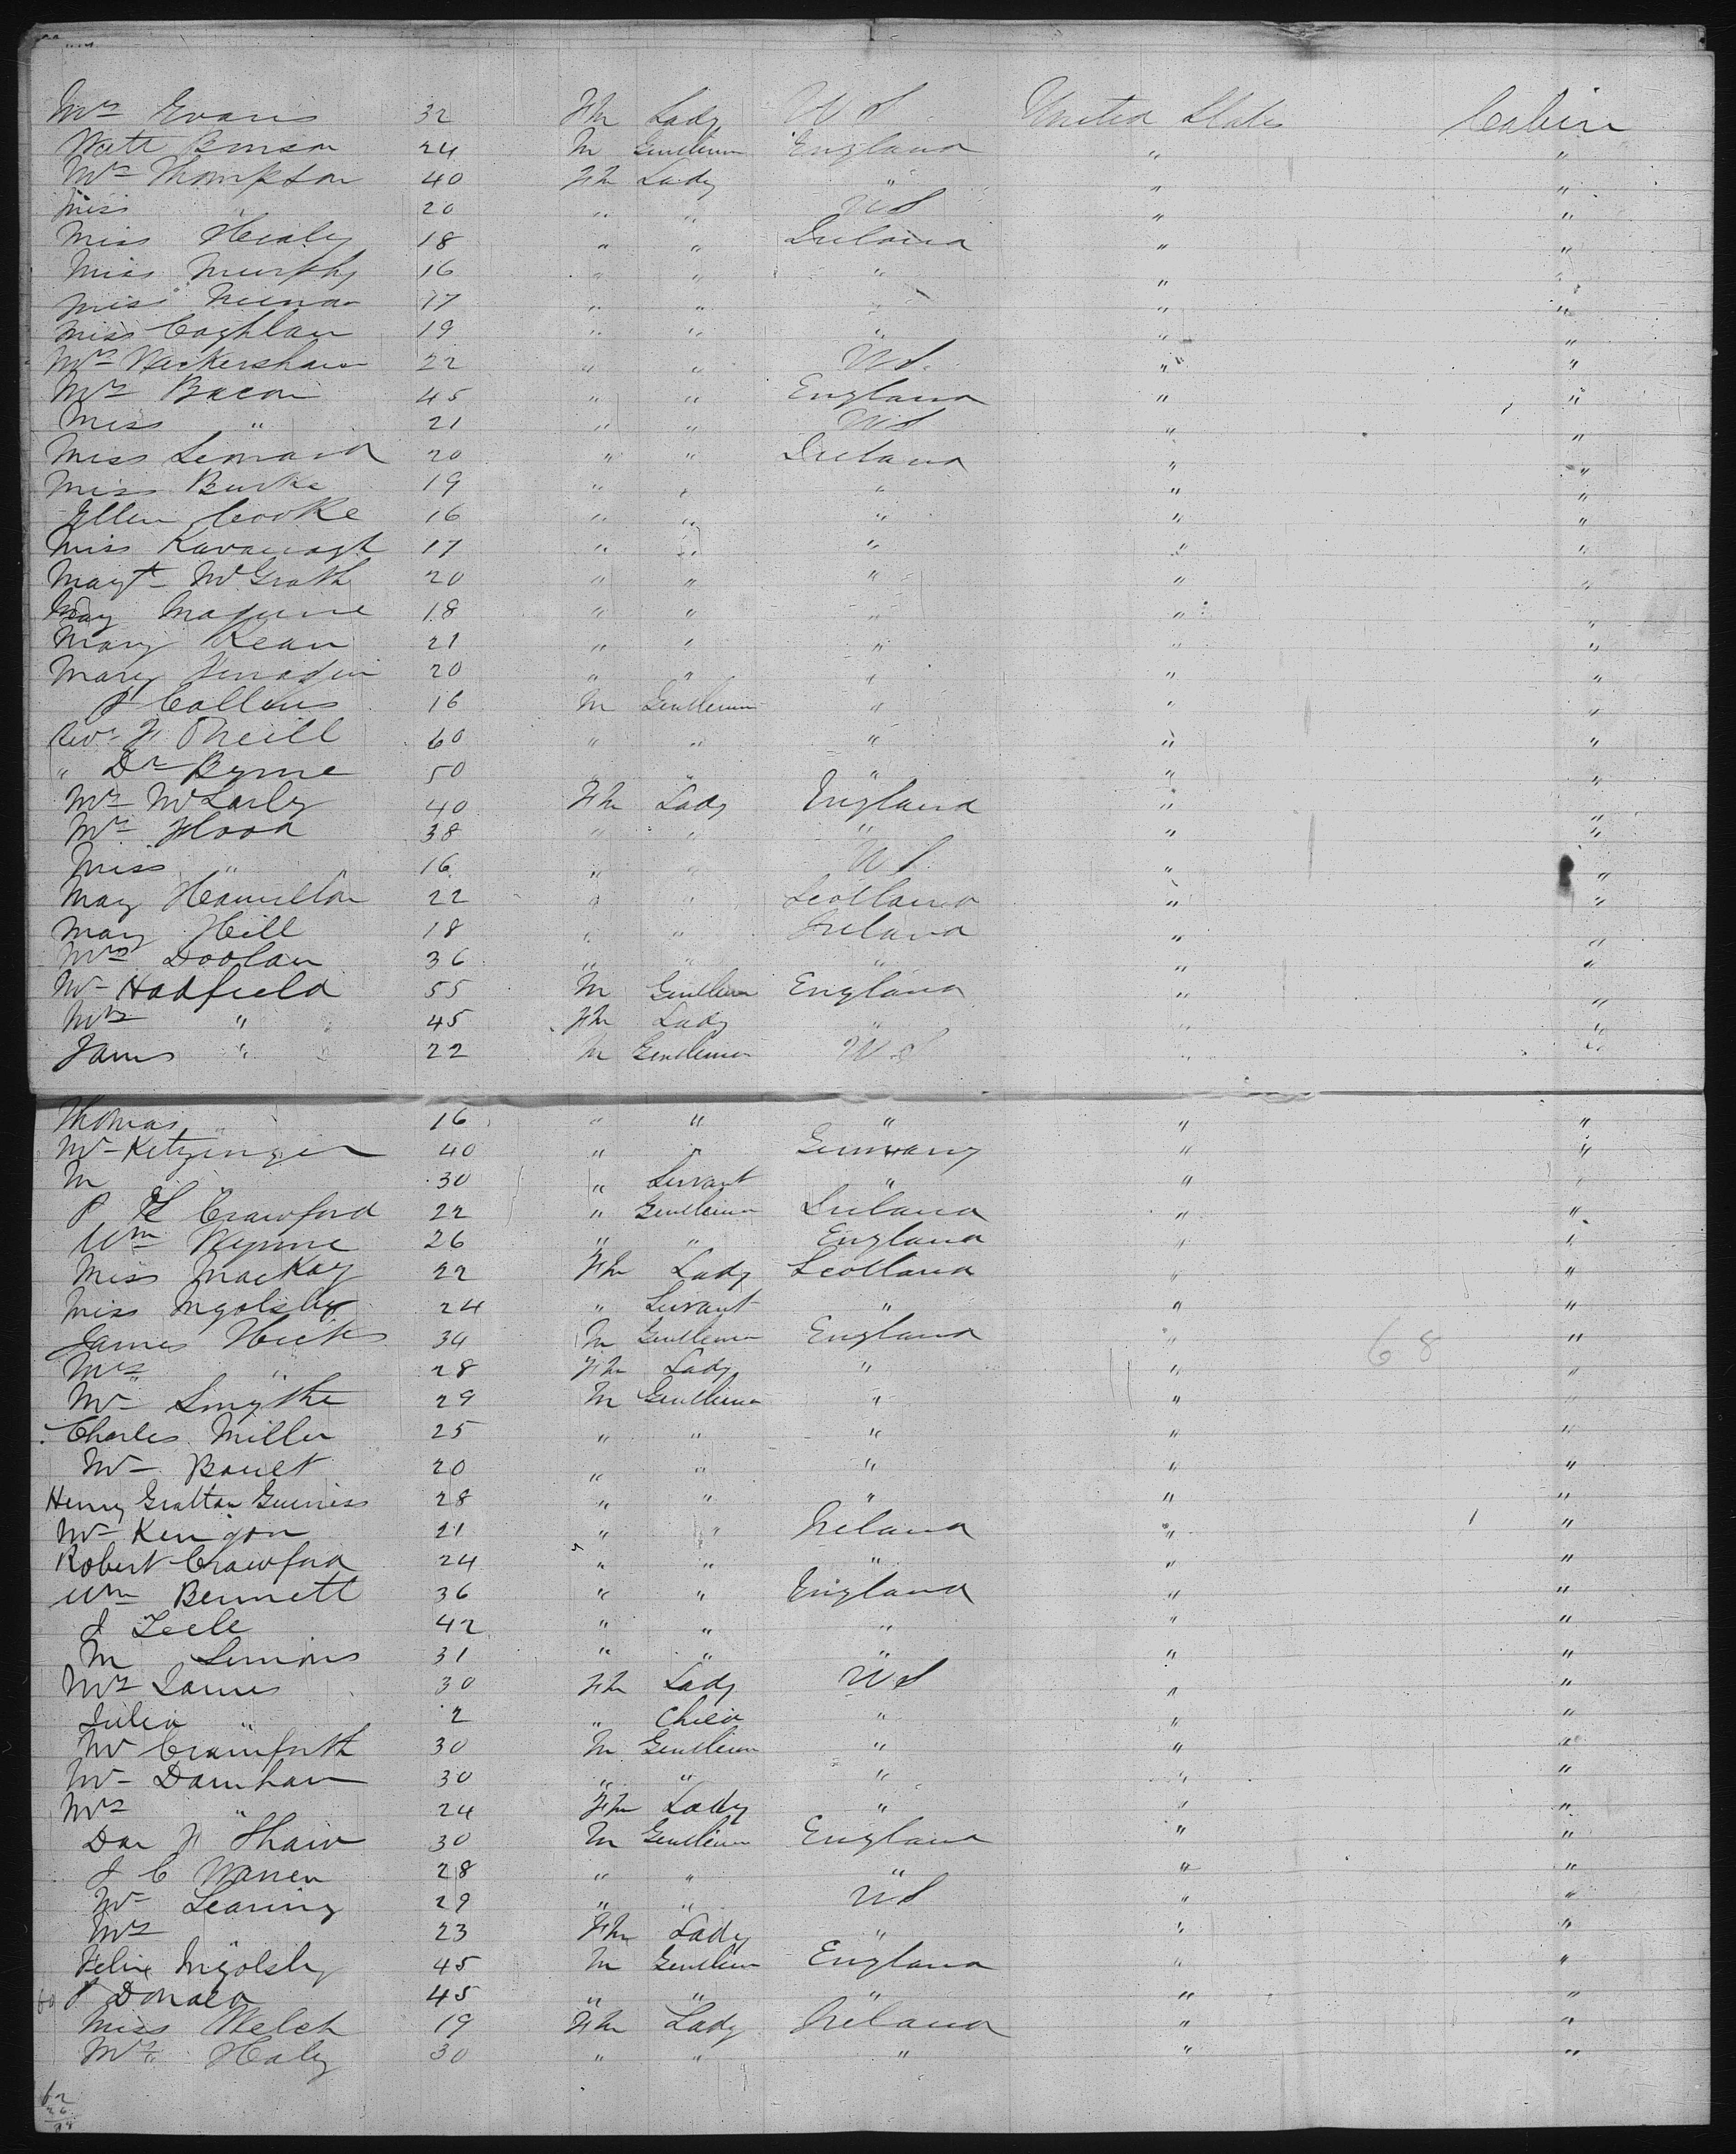 Mrs Evans 32 Fm Lady U S United States Cabin
Benson 24 M Gentleman England " "
Mrs Thompson 40 Fm Lady " " "
Miss " 20 " " U S " "
Miss Healy 18 " " Ireland " "
Miss Murphy 16 " " " " "
Miss 17 " " " " "
Miss Coghlan 19 " " " " "
Mrs 22 " " U S. " "
Mrs Bacon 45 " " England " "
Miss " 21 " " U S " "
Miss Leonard 20 " " Ireland " "
Miss Burke 19 " " " " "
Ellen Cooke 16 " " " " "
Miss Kavanagh 17 " " " " "
Margt McGrath 20 " " " " "
18 " " " " "
Mary Kean 21 " " " " "
Mary 20 " " " " "
P Collins 16 M Gentleman " " "
Revd F O'Neill 60 " " " " "
" Dr Byrne 50 " " " " "
Mrs 40 Fm Lady England " "
Mrs Flood 38 " " " " "
Miss " 16 " " U S " "
Mary Hamilton 22 " " Scotland " "
Mary Hill 18 " " Ireland " "
Mrs Doolan 36 " " " " "
Mr Hadfield 55 M Gentleman England " "
Mrs " 45 Fm Lady " " "
James " 22 M Gentleman U S " "
Thomas " 16 " " " " "
Mr Kitzinger 40 " " Germany " "
M 30 " Servant " " "
P Crawford 22 " Gentleman Ireland " "
Wm Wynne 26 " " England " "
Miss Mackay 22 Fm Lady Scotland " "
Miss Ingolsby 24 " Servant " " "
James Hicks 34 M Gentleman England " 68 "
Mrs " 28 Fm Lady " " "
Mr Smythe 29 M Gentleman " " "
Charles Miller 25 " " " " "
Mr 20 " " " " "
Henry Grattan Guiness 28 " " " " "
Mr Kenyon 21 " " Ireland " "
Robert Crawford 24 " " " " "
Wm Bennett 36 " " England " "
J 42 " " " " "
M Simons 31 " " " " "
Mrs 30 Fm Lady U S " "
Julia " 2 " Child " " "
Mr 30 M Gentleman " " "
Mr Darnham 30 " " " " "
Mrs " 24 Fm Lady " " "
Dan F Shaw 30 M Gentleman England " "
J C Warren 28 " " " " "
Mr Leaning 29 " " U S " "
Mrs " 23 Fm Lady " " "
Felix Ingolsby 45 M Gentleman England " "
P Donald 45 " " " " "
Miss Welch 19 Fm Lady Ireland " "
Mrs Haly 30 " " " " "
62
26